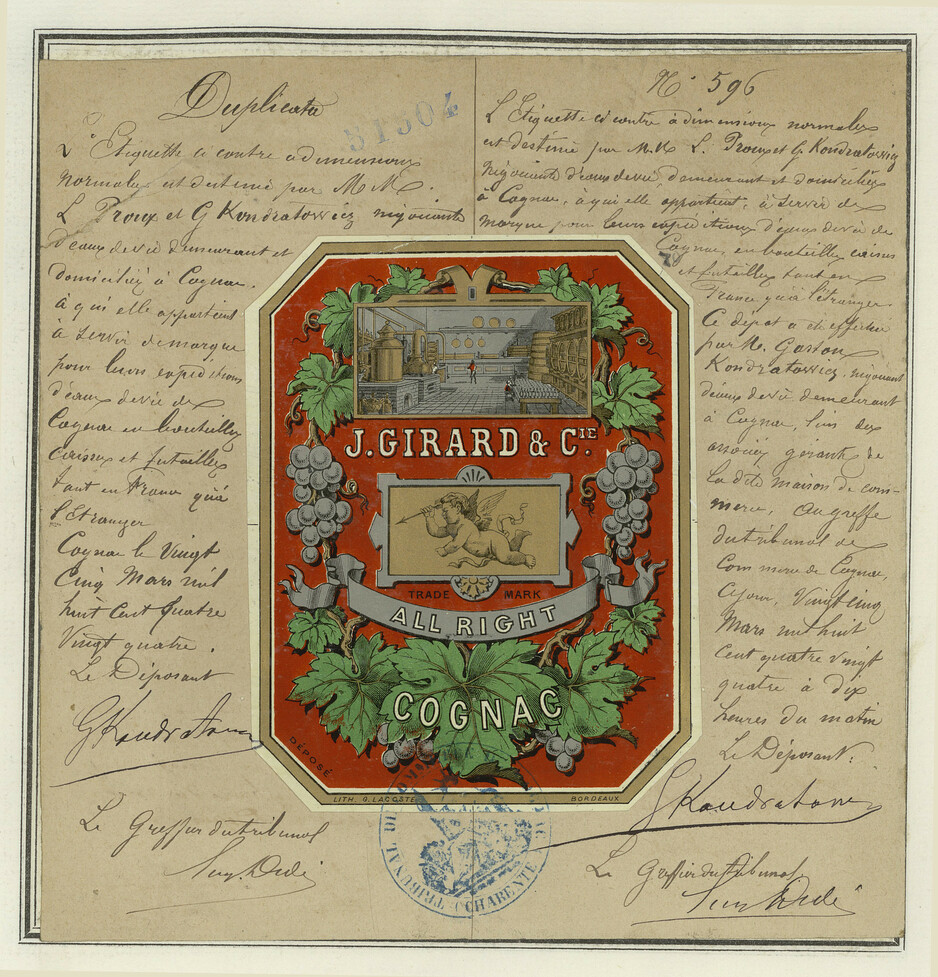 Duplicata
31304
L'Etiquette ci contre à dimensions
normales est destiné par M M.
L Proux et G Kondratowicz négociants
d'eaux de vie demeurant et
domiciliés à Cognac.
à qui elle appartient
à servir de marque
pour leurs expéditions
d'eaux de vie de
Cognac en bouteilles
caisses et futailles
tant en France qu'à
l'Etranger
Cognac le Vingt
Cinq Mars mil
huit Cent Quatre
Vingt quatre.
Le Déposant
G Kondratowicz
Le Greffier du tribunal
N° 596
L'Etiquette ci contre à dimensions normales
est destiné par M.M. L. Proux et G Kondratowicz
Négociants d'eaux de vie, demeurant et domiciliés
à Cognac, à qui elle appartient, à servir de
marque pour leurs expéditions d'eaux de vie de
Cognac, en bouteilles caisses
et futailles tant en
France qu'à l'étranger
Ce dépot a été effectué
par M. Gaston
Kondratowicz, négociant
d'eaux de vie demeurant
à Cognac, l'un des
associés gérants de
la dite maison de com-
merce, au greffe
du tribunal de
Commerce de Cognac,
Ce jour, Vingt cinq
Mars mil huit
Cent quatre vingt
quatre à dix
heures du matin
Le Déposant:
G Kondratowicz
Le Greffier du tribunal
J. GIRARD & CIE
TRADE MARK
ALL RIGHT
COGNAC
DÉPOSÉ
LITH. G. LACOSTE
BORDEAUX
TRIBUNAL
CHARENTE